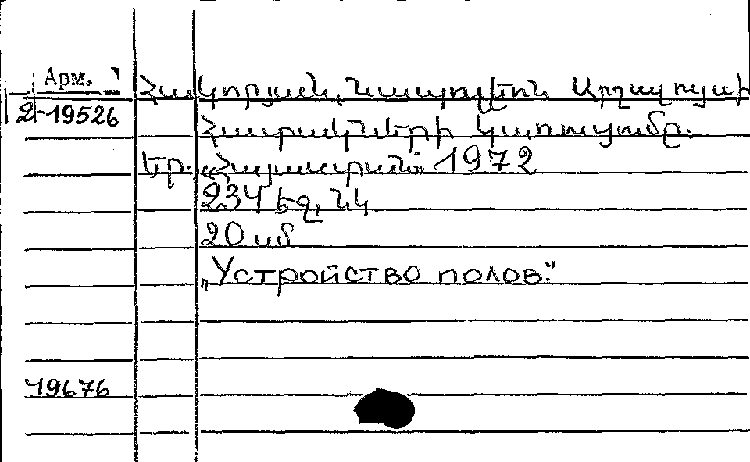 Арм.
2-19526
Հակոբյան, Նապոլեոն Արշավուսի
Հատակների կառուցումը.
Եր. „Հայաստան" 1972
234 եզ. նկ
20 սմ
„Устройство полов."
19676